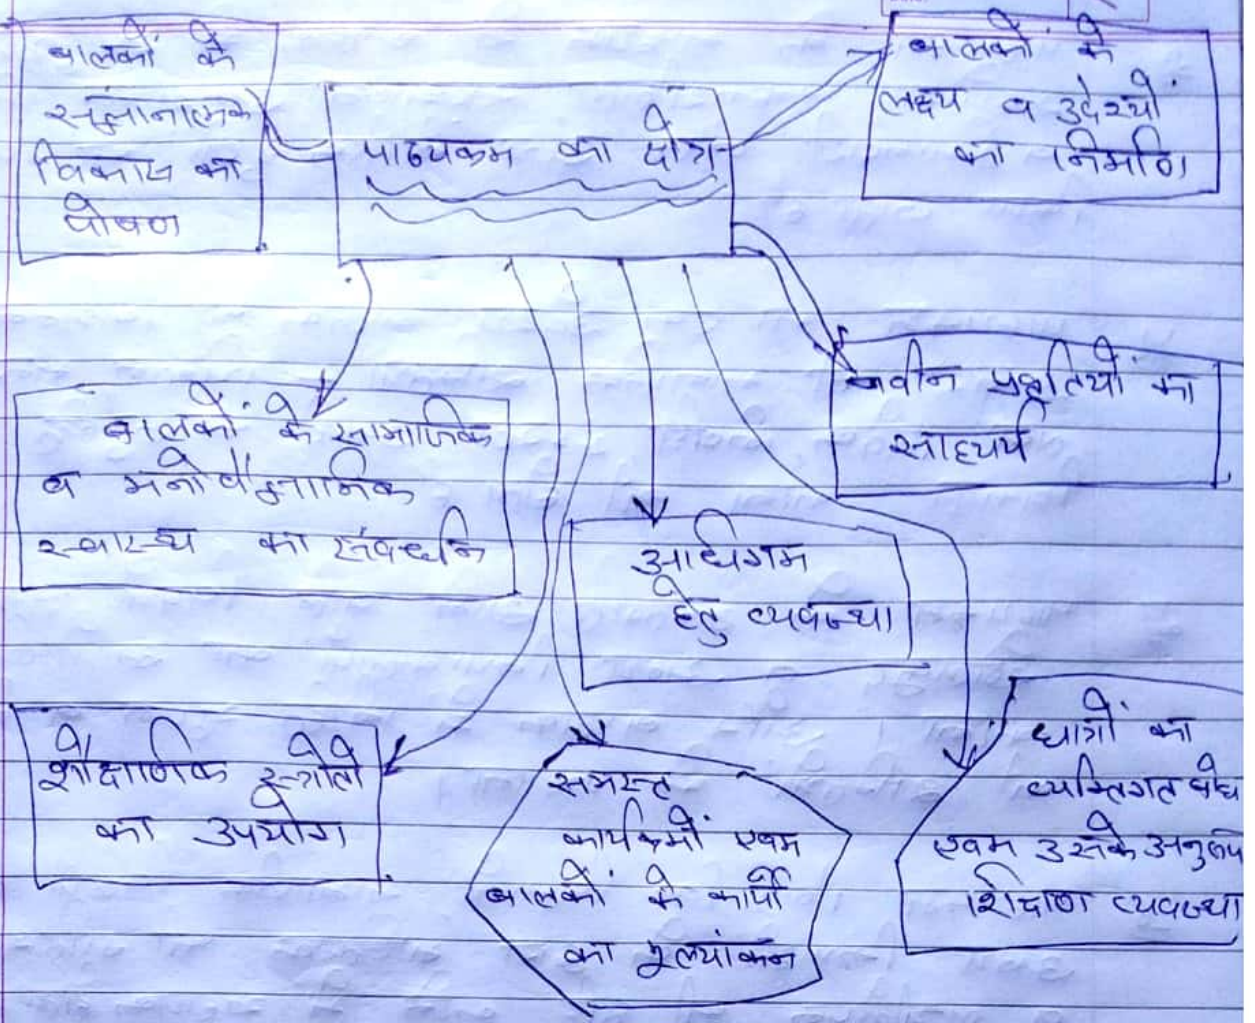 बालकों के
संज्ञानात्मक
विकास का
पोषण
पाठ्यक्रम का क्षेत्र
बालकों के
लक्ष्य व उद्देश्यों
का निर्माण
नवीन प्रवृतियों का
साहचर्य
बालकों के सामाजिक
व मनोवैज्ञानिक
स्वास्थ्य का संवर्धन
अधिगम
हेतु व्यवस्था
शैक्षणिक स्त्रोतों
का उपयोग
समस्त
कार्यक्रमों एवम
बालकों के कार्यों
का मूल्यांकन
छात्रों का
व्यक्तिगत बोध
एवम उसके अनुरूप
शिक्षण व्यवस्था